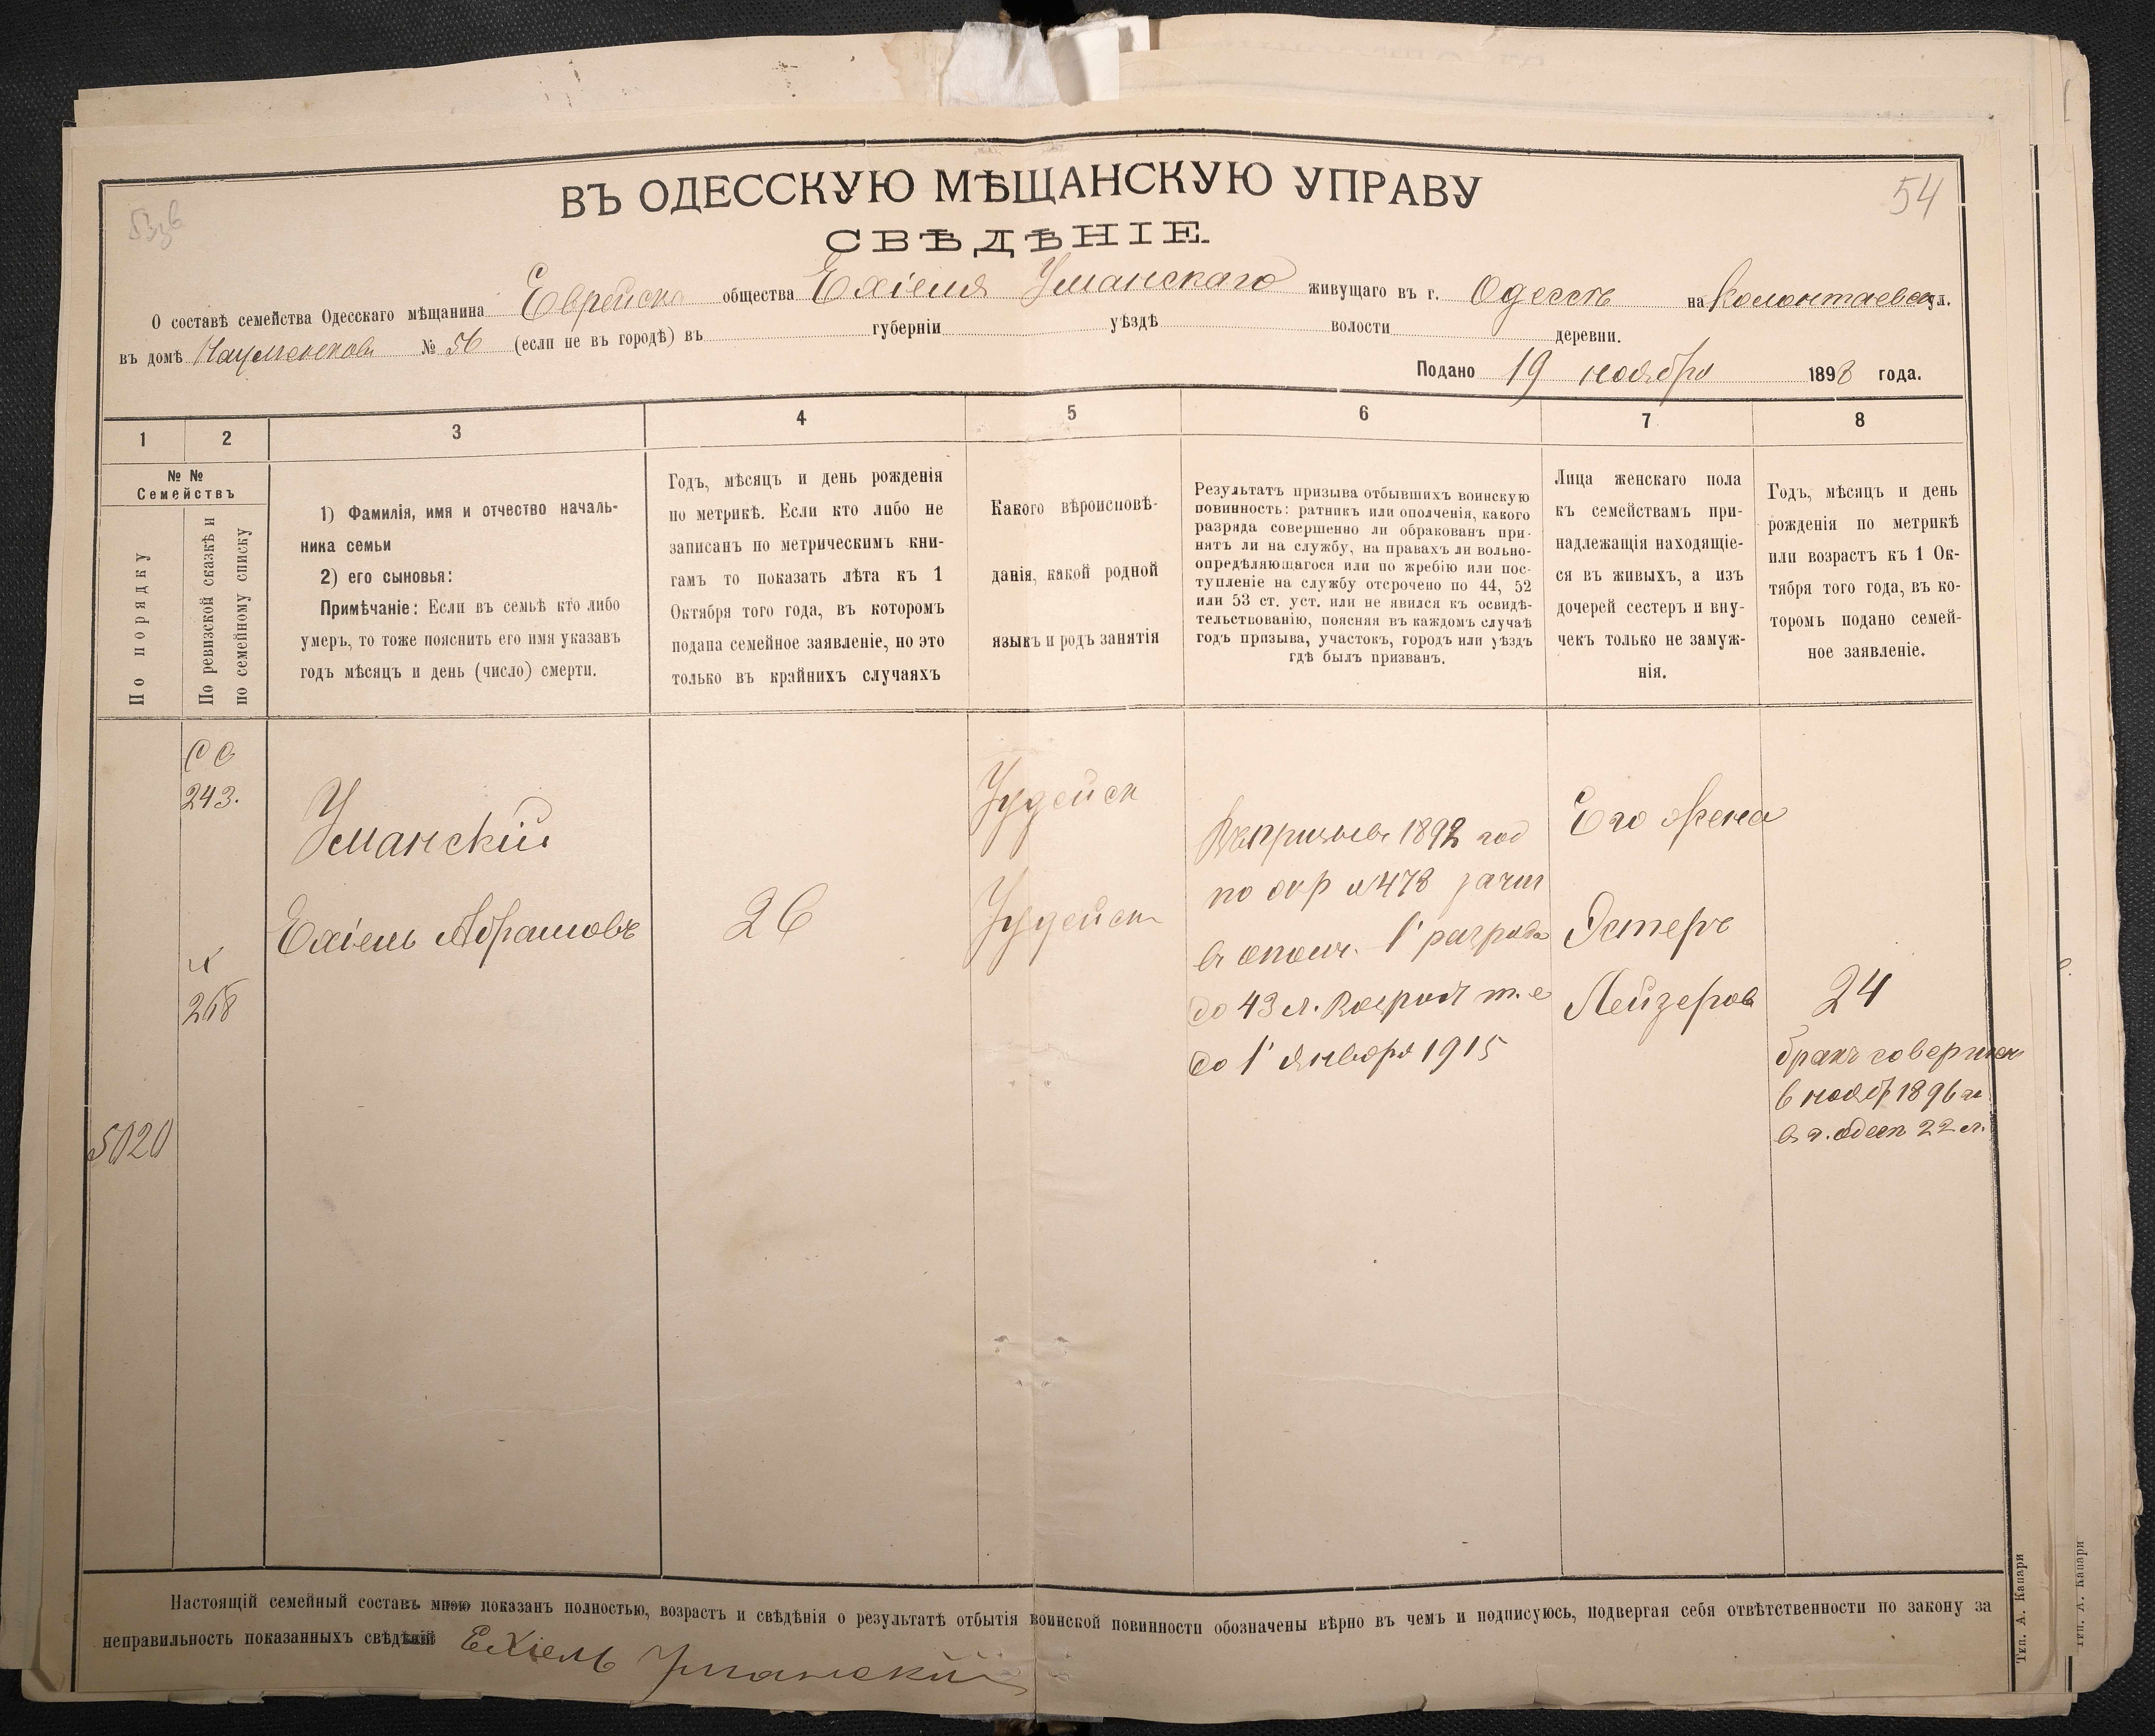 54
ВЪ ОДЕССКУЮ МѢЩАНСКУЮ УПРАВУ
СВѢДѢНІЕ
О составѣ семейства Одесскаго мѣщанина Еврейска общества Ехіеля Уманскаго живущаго въ г. Одессѣ на Колонтаевск ул.
въ домѣ № 56 (если не въ городѣ) въ губерніи уѣздѣ волости деревни.
Подано 19 ноября 1898 года.
1 2 3 4 5 6 7 8
№ №
Семействъ
По порядку
По ревизской сказкѣ и
по семейному списку
1) Фамилія, имя и отчество началь-
ника семьи
2) его сыновья:
Примѣчаніе: Если въ семьѣ кто либо
умеръ, то тоже пояснить его имя указавъ
годъ мѣсяцъ и день (число) смерти.
Годъ, мѣсяцъ и день рожденія
по метрикѣ. Если кто либо не
записанъ по метрическимъ кни-
гамъ то показать лѣта къ 1
Октября того года, въ котором
подана семейное заявленіе, но это
только въ крайнихъ случаяхъ
Какого вѣроисповѣ-
данія, какой родной
языкъ и родъ занятія
Результатъ призыва отбывшихъ воинскую
повинность: ратникъ или ополченія, какого
разряда совершенно ли обракованъ при-
нятъ ли на службу, на правахъ ли вольно-
опредѣляющагося или по жребію или пос-
тупленіе на службу отсрочено по 44, 52
или 53 ст. уст. или не явился къ освидѣ-
тельствованію, поясняя въ каждомъ случаѣ
годъ призыва, участокъ, городъ или уѣздъ
гдѣ былъ призванъ.
Лица женскаго пола
къ семействамъ при-
надлежащія находящіе-
ся въ живыхъ, а изъ
дочерей сестеръ и вну-
чекъ только не замуж-
нія.
Годъ, мѣсяцъ и день
рожденія по метрикѣ
или возрастъ къ 1 Ок-
тября того года, въ ко-
торомъ подано семей-
ное заявленіе.
243.
268
5020
Уманскій
Ехіель Абрамовъ
26
Іудейск
Іудейск
1892 год
по № 478 зачис
в ополч. 1 разряда
до 43 л. возраст т. е
до 1 января 1915
Его жена
Эстеръ
Лейзеров
24
бракъ совершен
в нояб 1896 г
в г. Одесс 22 л.
Настоящій семейный составъ мною показанъ полностью, возрастъ и свѣдѣнія о результатѣ отбытія воинской повинности обозначены вѣрно въ чемъ и подписуюсь, подвергая себя отвѣтственности по закону за
неправильность показанныхъ свѣдѣній Ехіель Уманскій
Тип. А. Капари
Тип. А. Капари